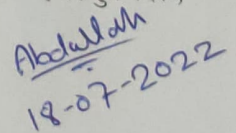 Abdullah
18-07-2022